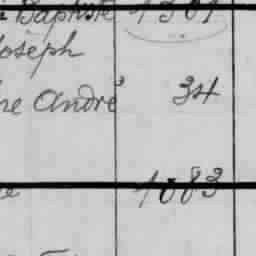 Baptiste 1301
Joseph
ne André 34
1883